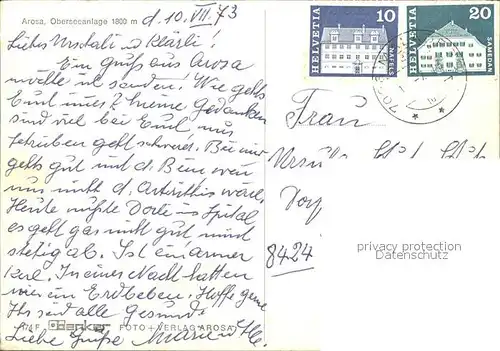 Arosa, Oberseeanlage 1800 m
d. 10. VII. 73
Liebes Urschali u Klärli!
Ein Gruss aus Arosa
möchte ich senden! Wie gehts
Euch immer? meine Gedanken
sind viel bei Euch, nur
schreiben geht schwer. Bei mir
gehts gut und d. Bein wen
nur nicht d. Artritis wäre.
Heute musste Dorli ins Spital
es geht gar nicht gut nimmt
stetig ab. Ist ein armer
Kerl. In einer Nacht hatten
wir ein Erdbeben. Hoffe gerne
Ihr seid alle gesund
Liebe Grüsse
FOTO + VERLAG AROSA
HELVETIA
10
NÄFELS
HELVETIA
20
SAMEDAN
Frau
Dorf
8424
privacy protection
Datenschutz